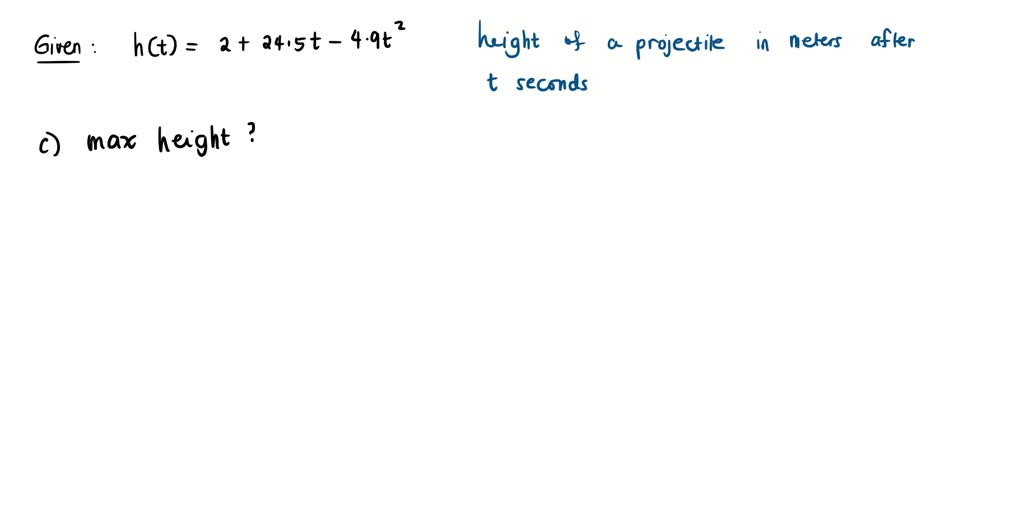 Given : h(t) = 2 + 24.5t - 4.9t² height of a projectile in meters after
t seconds
c) max height ?